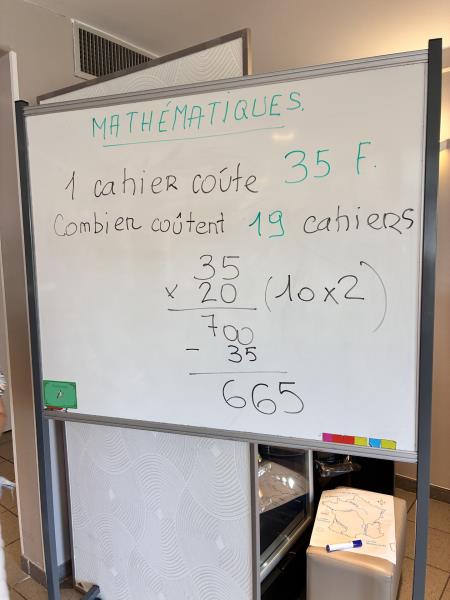 MATHÉMATIQUES.
1 cahier coûte 35 F.
Combien coûtent 19 cahiers
35
x 20 (10x2)
700
- 35
665